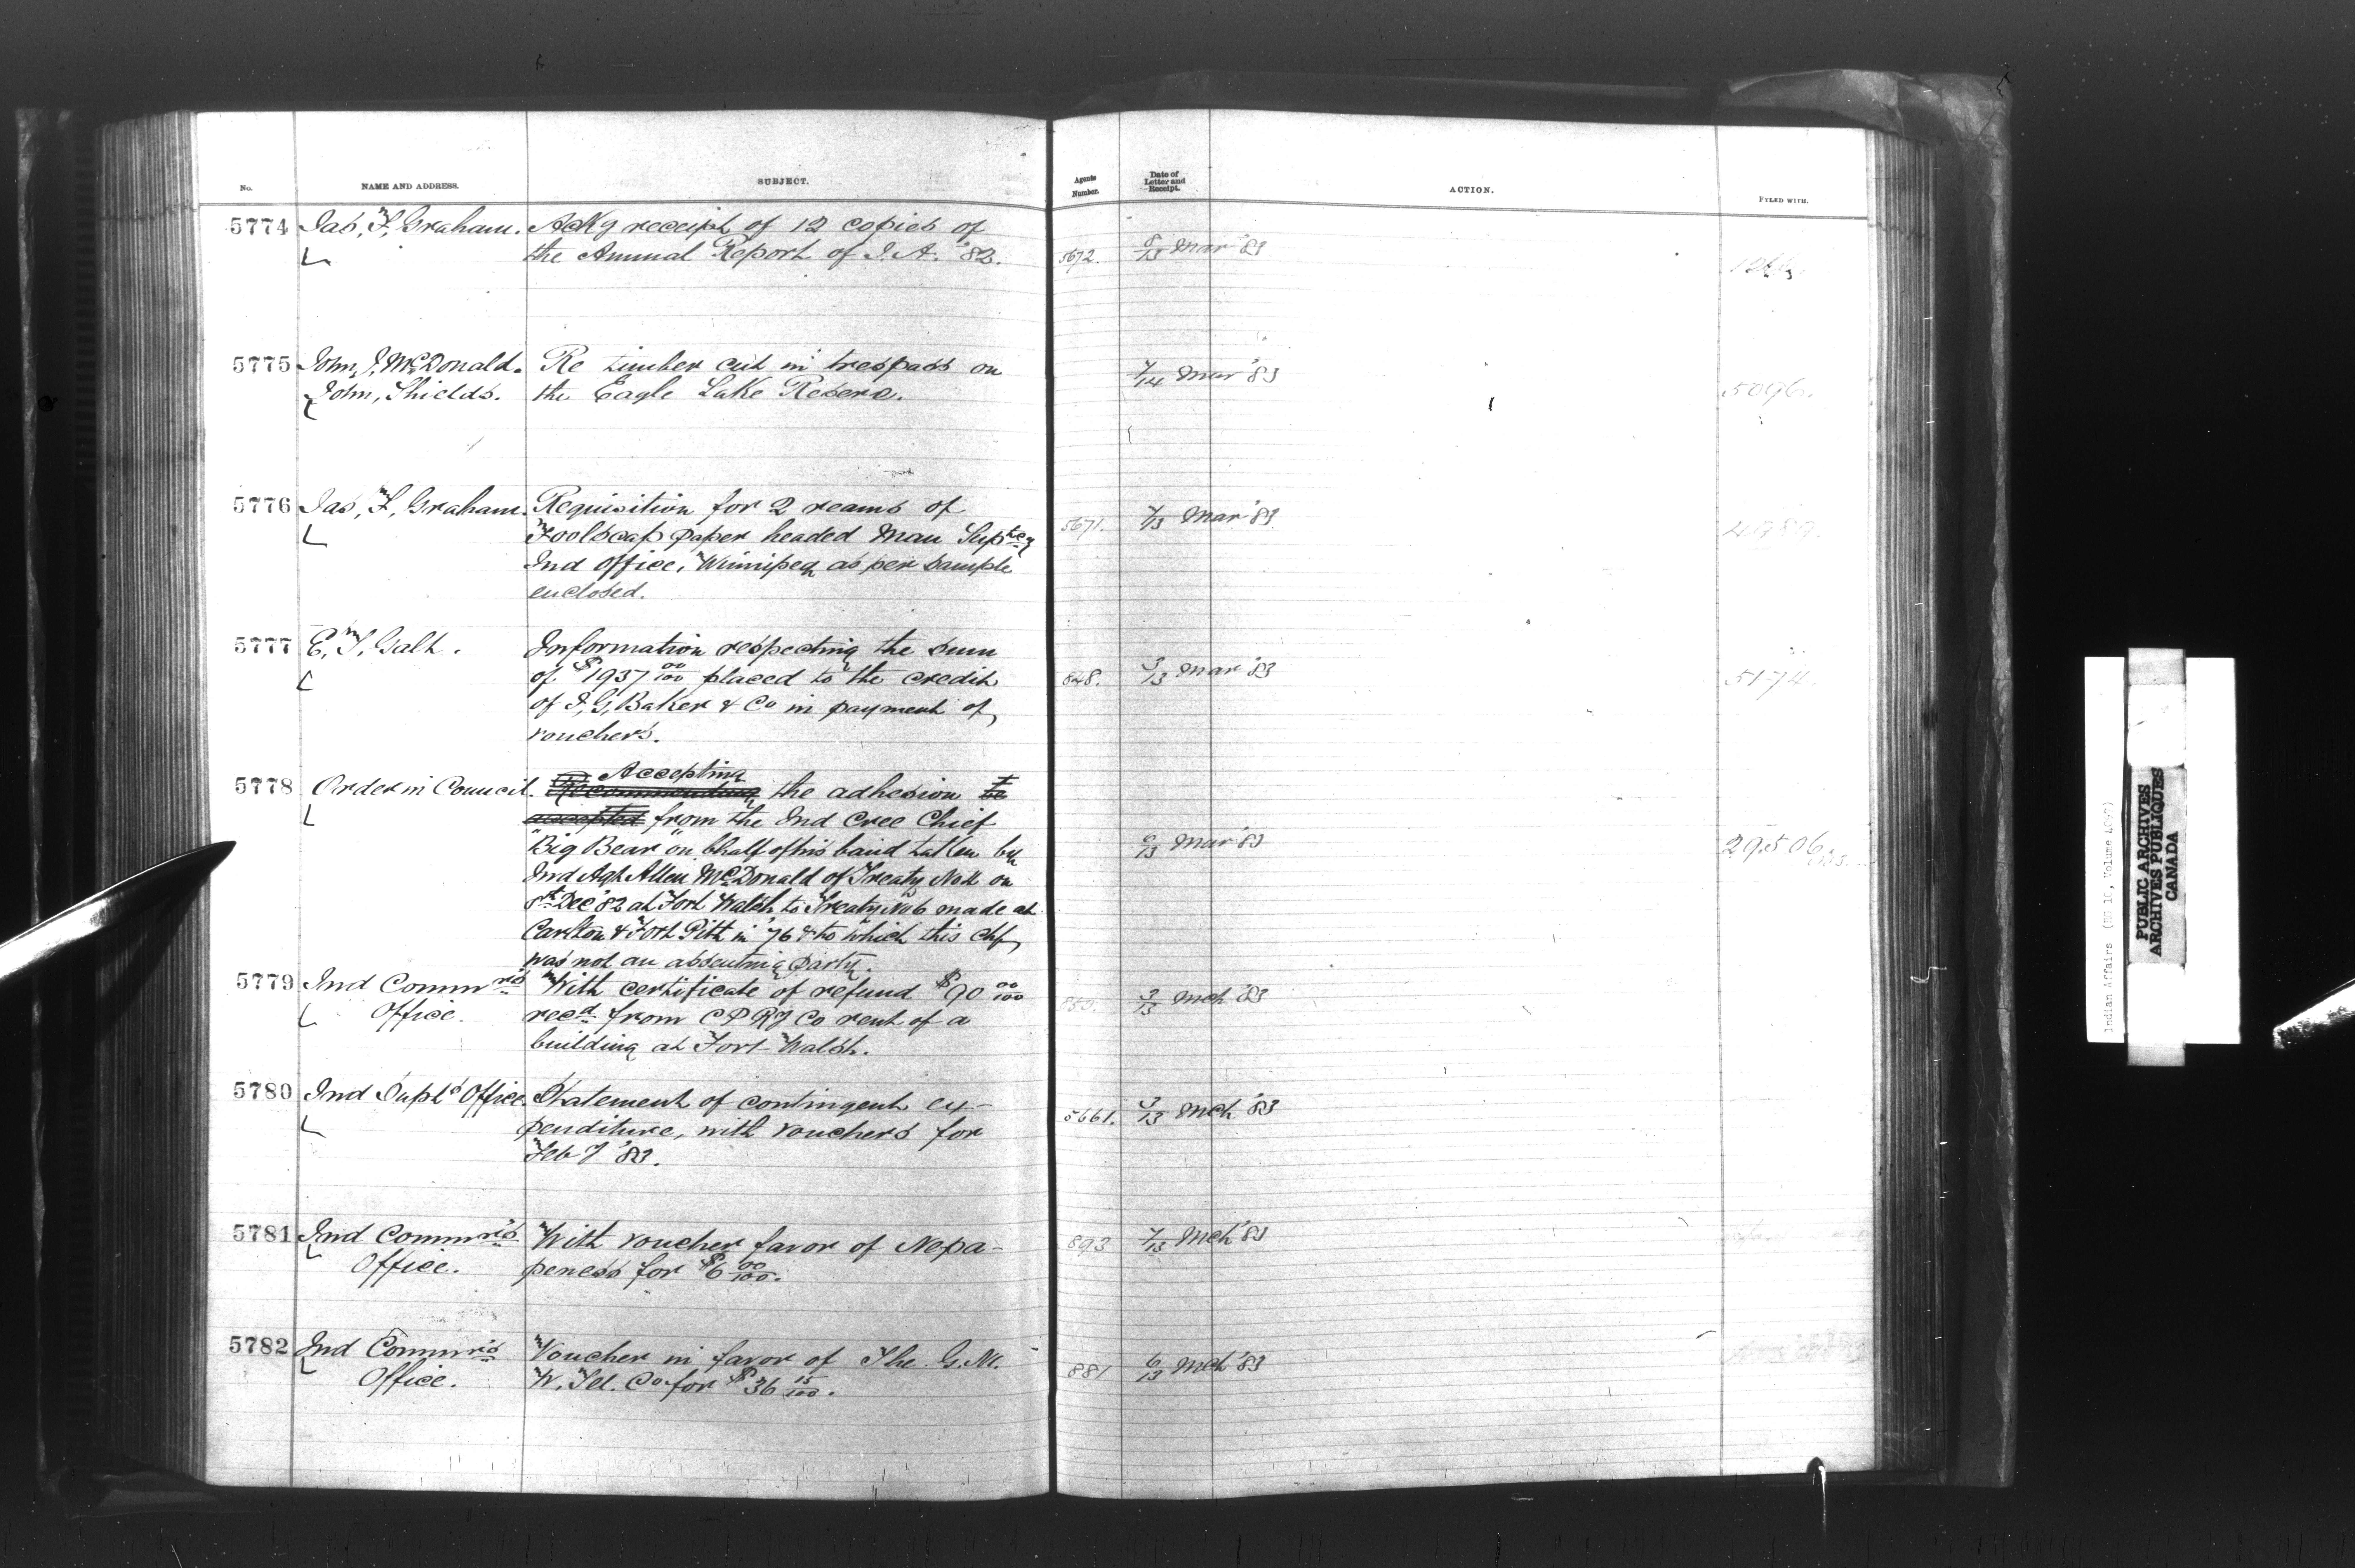 No. NAME AND ADDRESS. SUBJECT. Agents Number. Date of Letter and Receipt. ACTION. FYLED WITH.
5774 Jas, F, Graham. Ackg receipt of 12 copies of
the Annual Report of I. A. '82. 5672. 8/13 Mar '83
5775 John, J, McDonald. Re timber cut in trespass on 7/14 Mar '83
John, Shields. the Eagle Lake Reserve. 5096.
5776 Jas, F, Graham. Requisition for 2 reams of 5671. 7/13 Mar '83
Foolscap paper headed Man Suptcy 4989.
Ind Office, Winnipeg as per sample
enclosed.
5777 E, T, Galt. Information respecting the sum
of $1937 00/100 placed to the credit 848. 3/13 Mar '83 5174.
of I, G, Baker & Co in payment of
vouchers.
Accepting
5778 Order in Council. Recommending the adhesion to be
accepted from the Ind Cree Chief
"Big Bear" on bhalf of his band taken by /13 Mar '83 29506.
Ind Agt Allen McDonald of Treaty No 4 on
8th Dec '82 at Fort Walsh to Treaty No 6 made at
Carlton & Fort Pitt in '76 & to which this Chf,
was not an assenting party.
5779 Ind Commr's With certificate of refund $90 00/100 3/13 Mch '83
Office. recd from C P Ry Co rent of a
building at Fort Walsh.
5780 Ind Supt's Office. Statement of contingent ex- 5661. 3/13 Mch '83
penditure, with vouchers for
Feby '83.
5781 Ind Commr's With voucher favor of Nepa- 893 7/13 Mch '83
Office. peness for $6 00/100.
5782 Ind Commr's Voucher in favor of The G. N. 881 6/13 Mch '83
Office. W. Tel. Co for $36 15/100.
Indian Affairs (RG 10, Volume
PUBLIC ARCHIVES
ARCHIVES PUBLIQUES
CANADA